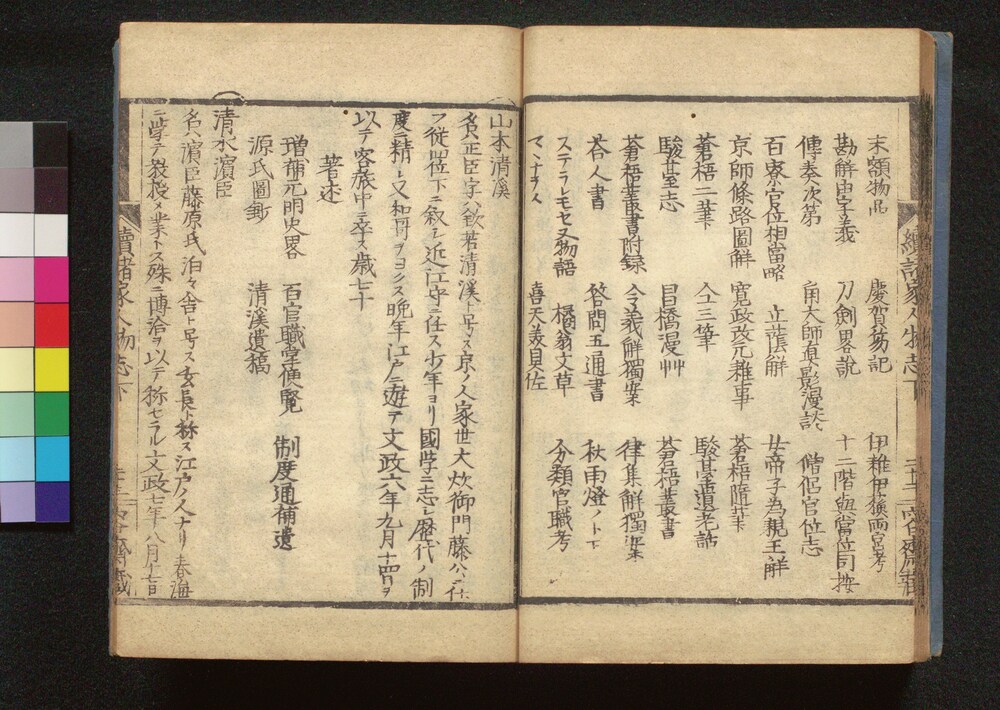 末額物品　慶賀易記　伊雑伊猿両宮考
勘解由字義　刀劍畧説　十二階與當位同按
傳奏次第　角大師真影漫談　偕侶官位志
百寮官位相當略　立蔭解　女帝子為親王解
京師條路圖解　寛政改元雑事　蒼梧隨筆
蒼梧二筆　仝三筆　駿䑓遺老話
駿䑓志　昌橋漫艸　蒼梧叢書
蒼梧叢書附録　令義解獨案　律集解獨案
荅人書　答問五通書　秋雨燈ノト下
ステラレモセヌ物語　橘翁文草　分類官職考
マヽナラス　喜天美貝佐
山本清溪
名ハ正臣字ハ欽若清溪ト号ス京ノ人家世大炊御門藤公ニ仕
フ従位下ニ叙シ近江守ニ任ス少年ヨリ國学ニ志シ歴代ノ制
度ニ精シ又和哥ヲヨクス晩年江戸ニ遊テ文政六年九月十四日ヲ
以テ客旅中ニ卒ス歳七十
著述
増補元明史畧　百官職掌便覧　制度通補遺
源氏圖鈔　清溪遺稿
清水濱臣
名ハ濱臣藤原氏泊々舎ト号ス玄長ト称ス江戸ノ人ナリ春海
ニ学テ教授ヲ業トス殊ニ博洽ヲ以テ称セラル文政七年八月十七日
續諸家人物志下
續諸家人物志下